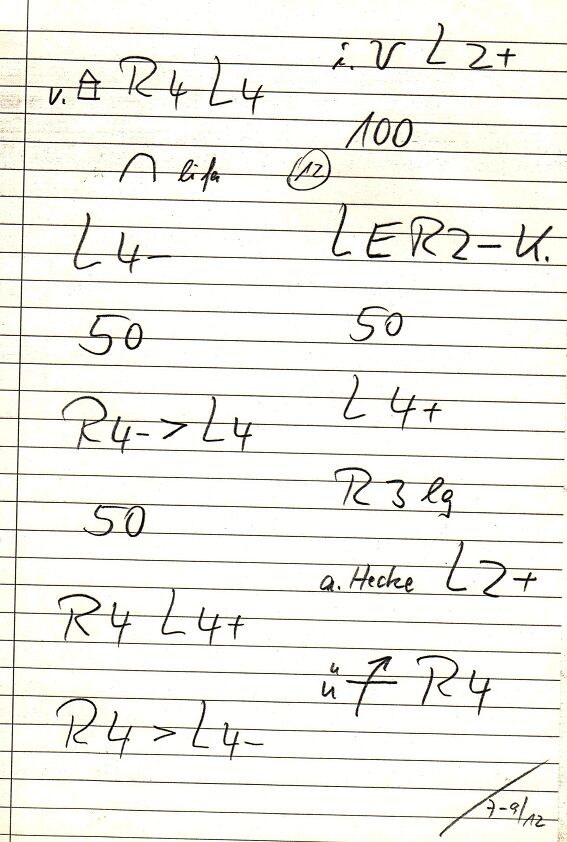 v. R4 L4
lifa
L4-
50
R4->L4
50
R4 L4+
R4>L4-
i. V L2+
100
12
LER2-K.
50
L4+
R3 lg
a. Hecke L2+
ü R4
7-9/12